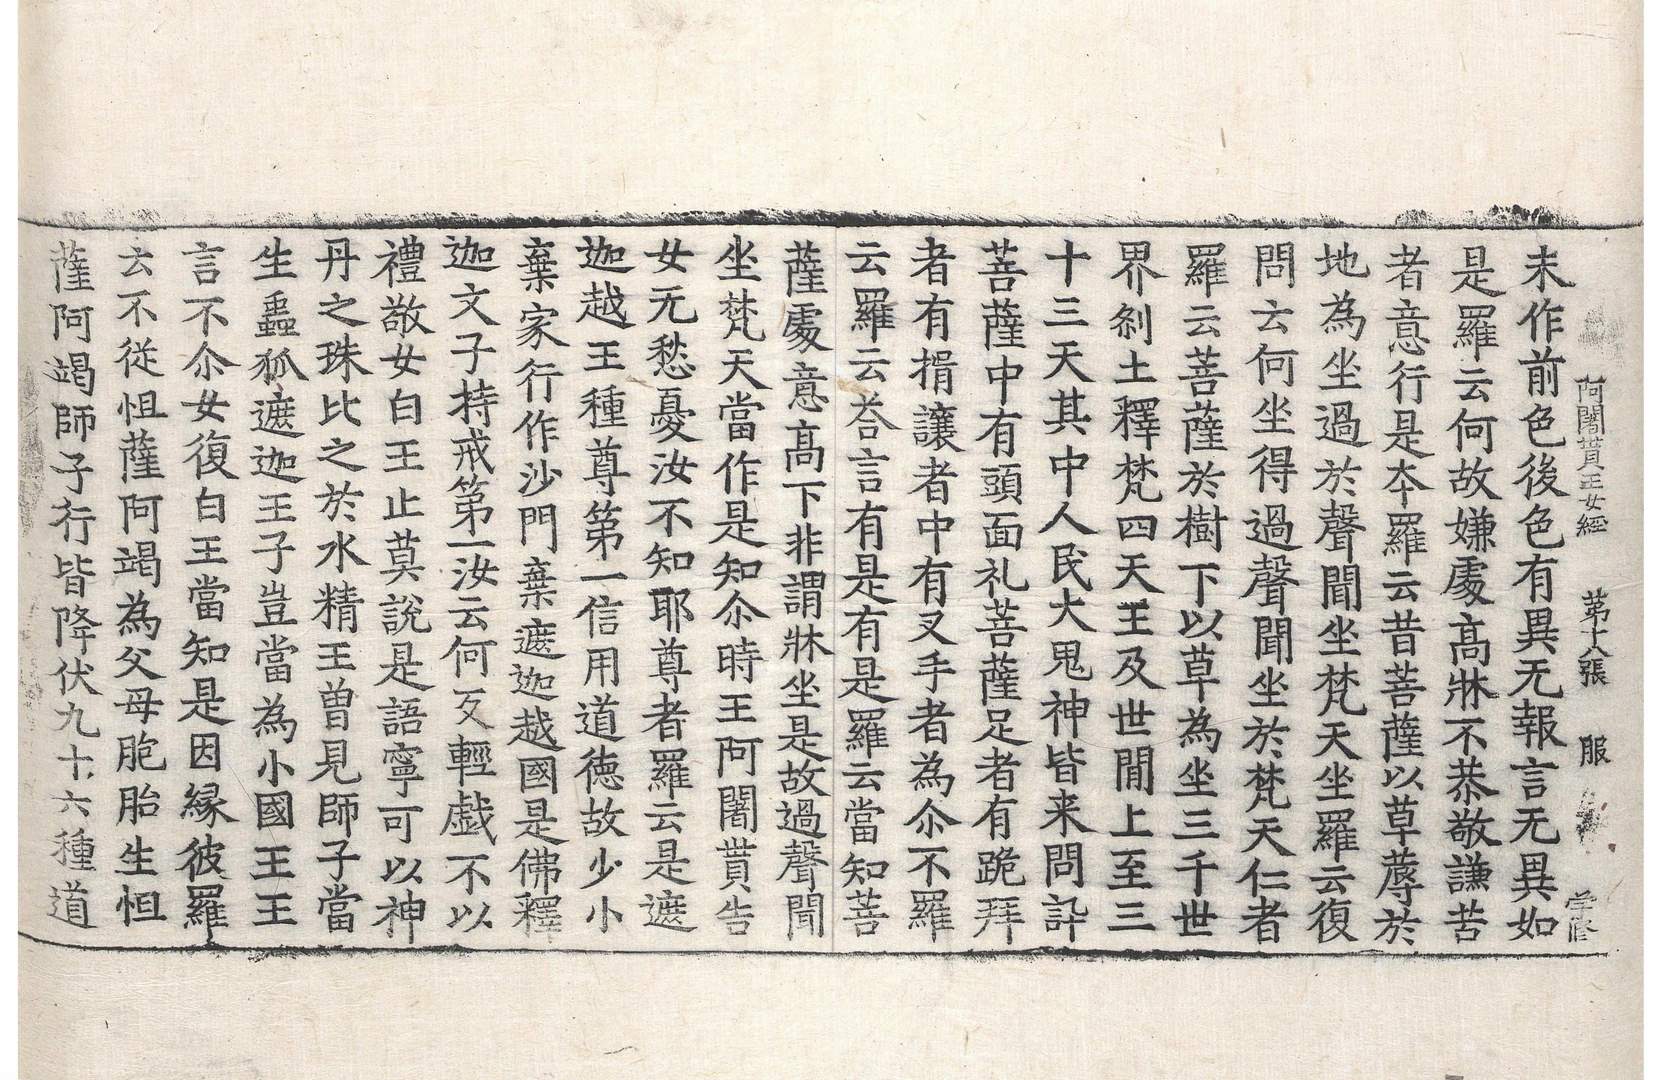 阿闍貰王女經　第六張　服
未作前色後色有異无報言无異如
是羅云何故嫌處高牀不恭敬謙苦
者意行是夲羅云昔菩薩以草蓐於
地為坐過於聲聞坐梵天坐羅云復
問云何坐得過聲聞坐於梵天仁者
羅云菩薩於樹下以草為坐三千世
界剎土釋梵四天王及世間上至三
十三天其中人民大鬼神皆来問訊
菩薩中有頭面礼菩薩足者有跪拜
者有揖讓者中有叉手者為尒不羅
云羅云荅言有是有是羅云當知菩
薩處意高下非謂牀坐是故過聲聞
坐梵天當作是知尒時王阿闍貰告
女无愁憂汝不知耶尊者羅云是遮
迦越王種尊第一信用道德故少小
棄家行作沙門棄遮迦越國是佛釋
迦文子持戒第一汝云何反輕戯不以
禮敬女白王止莫說是語寧可以神
丹之珠比之於水精王曽見師子當
生蠱狐遮迦王子豈當為小國王王
言不尒女復白王當知是因緣彼羅
云不從怛薩阿竭為父母胞胎生怛
薩阿竭師子行皆降伏九十六種道